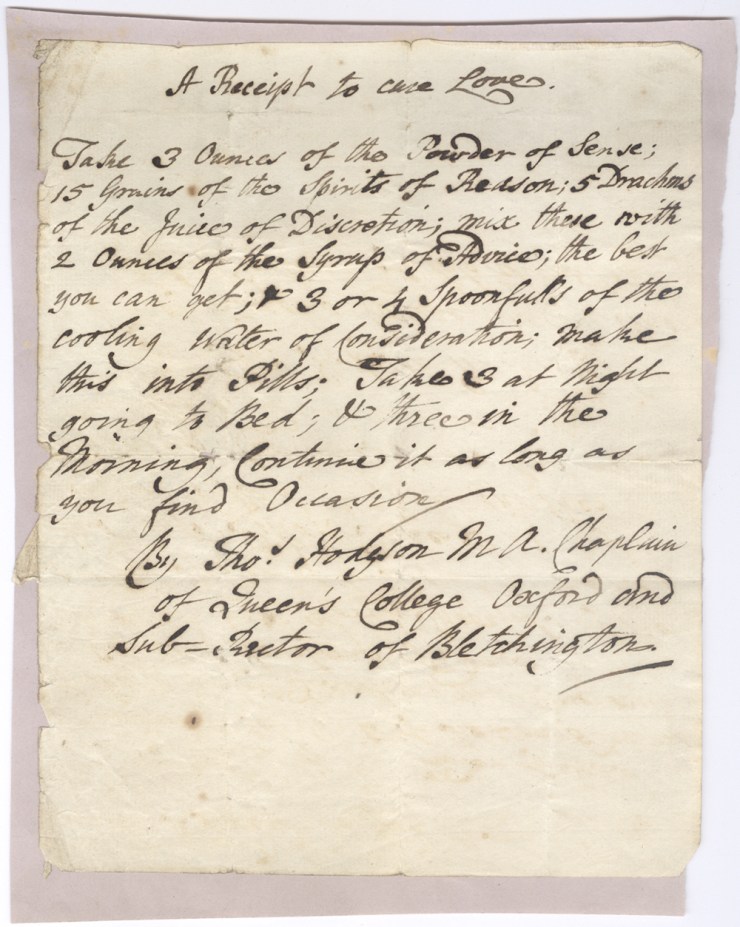 A Receipt to cure Love.
Take 3 Ounces of the Powder of Sense;
15 Grains of the Spirits of Reason; 5 Drachms
of the Juice of Discretion; mix these with
2 Ounces of the Syrup of Advice; the best
you can get; & 3 or 4 Spoonfulls of the
cooling Water of Consideration; make
this into Pills; Take 3 at Night
going to Bed; & three in the
Morning, Continue it as long as
you find Occasion
By Thos. Hodgson M A. Chaplain
of Queen's College Oxford and
Sub-Rector of Bletchington.